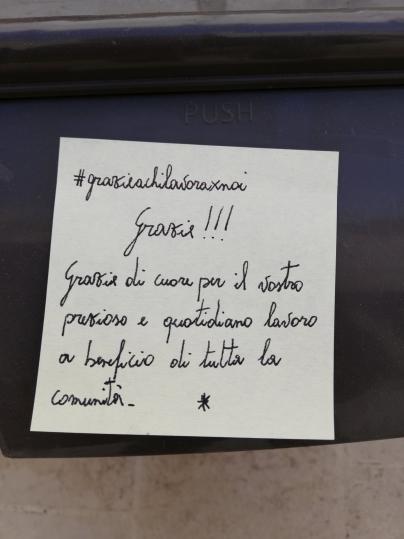 PUSH
#grazieachilavoraxnoi
Grazie!!!
Grazie di cuore per il vostro
prezioso e quotidiano lavoro
a beneficio di tutta la
comunità_ *